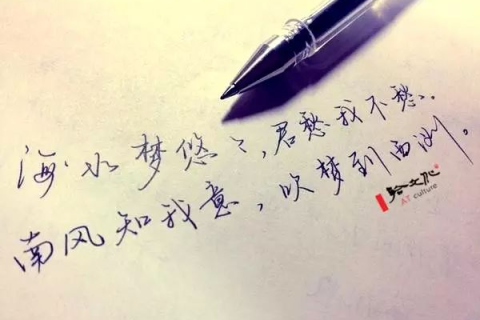 海水梦悠〻,君愁我不愁.
南风知我意,吹梦到西洲。
文化
AT culture